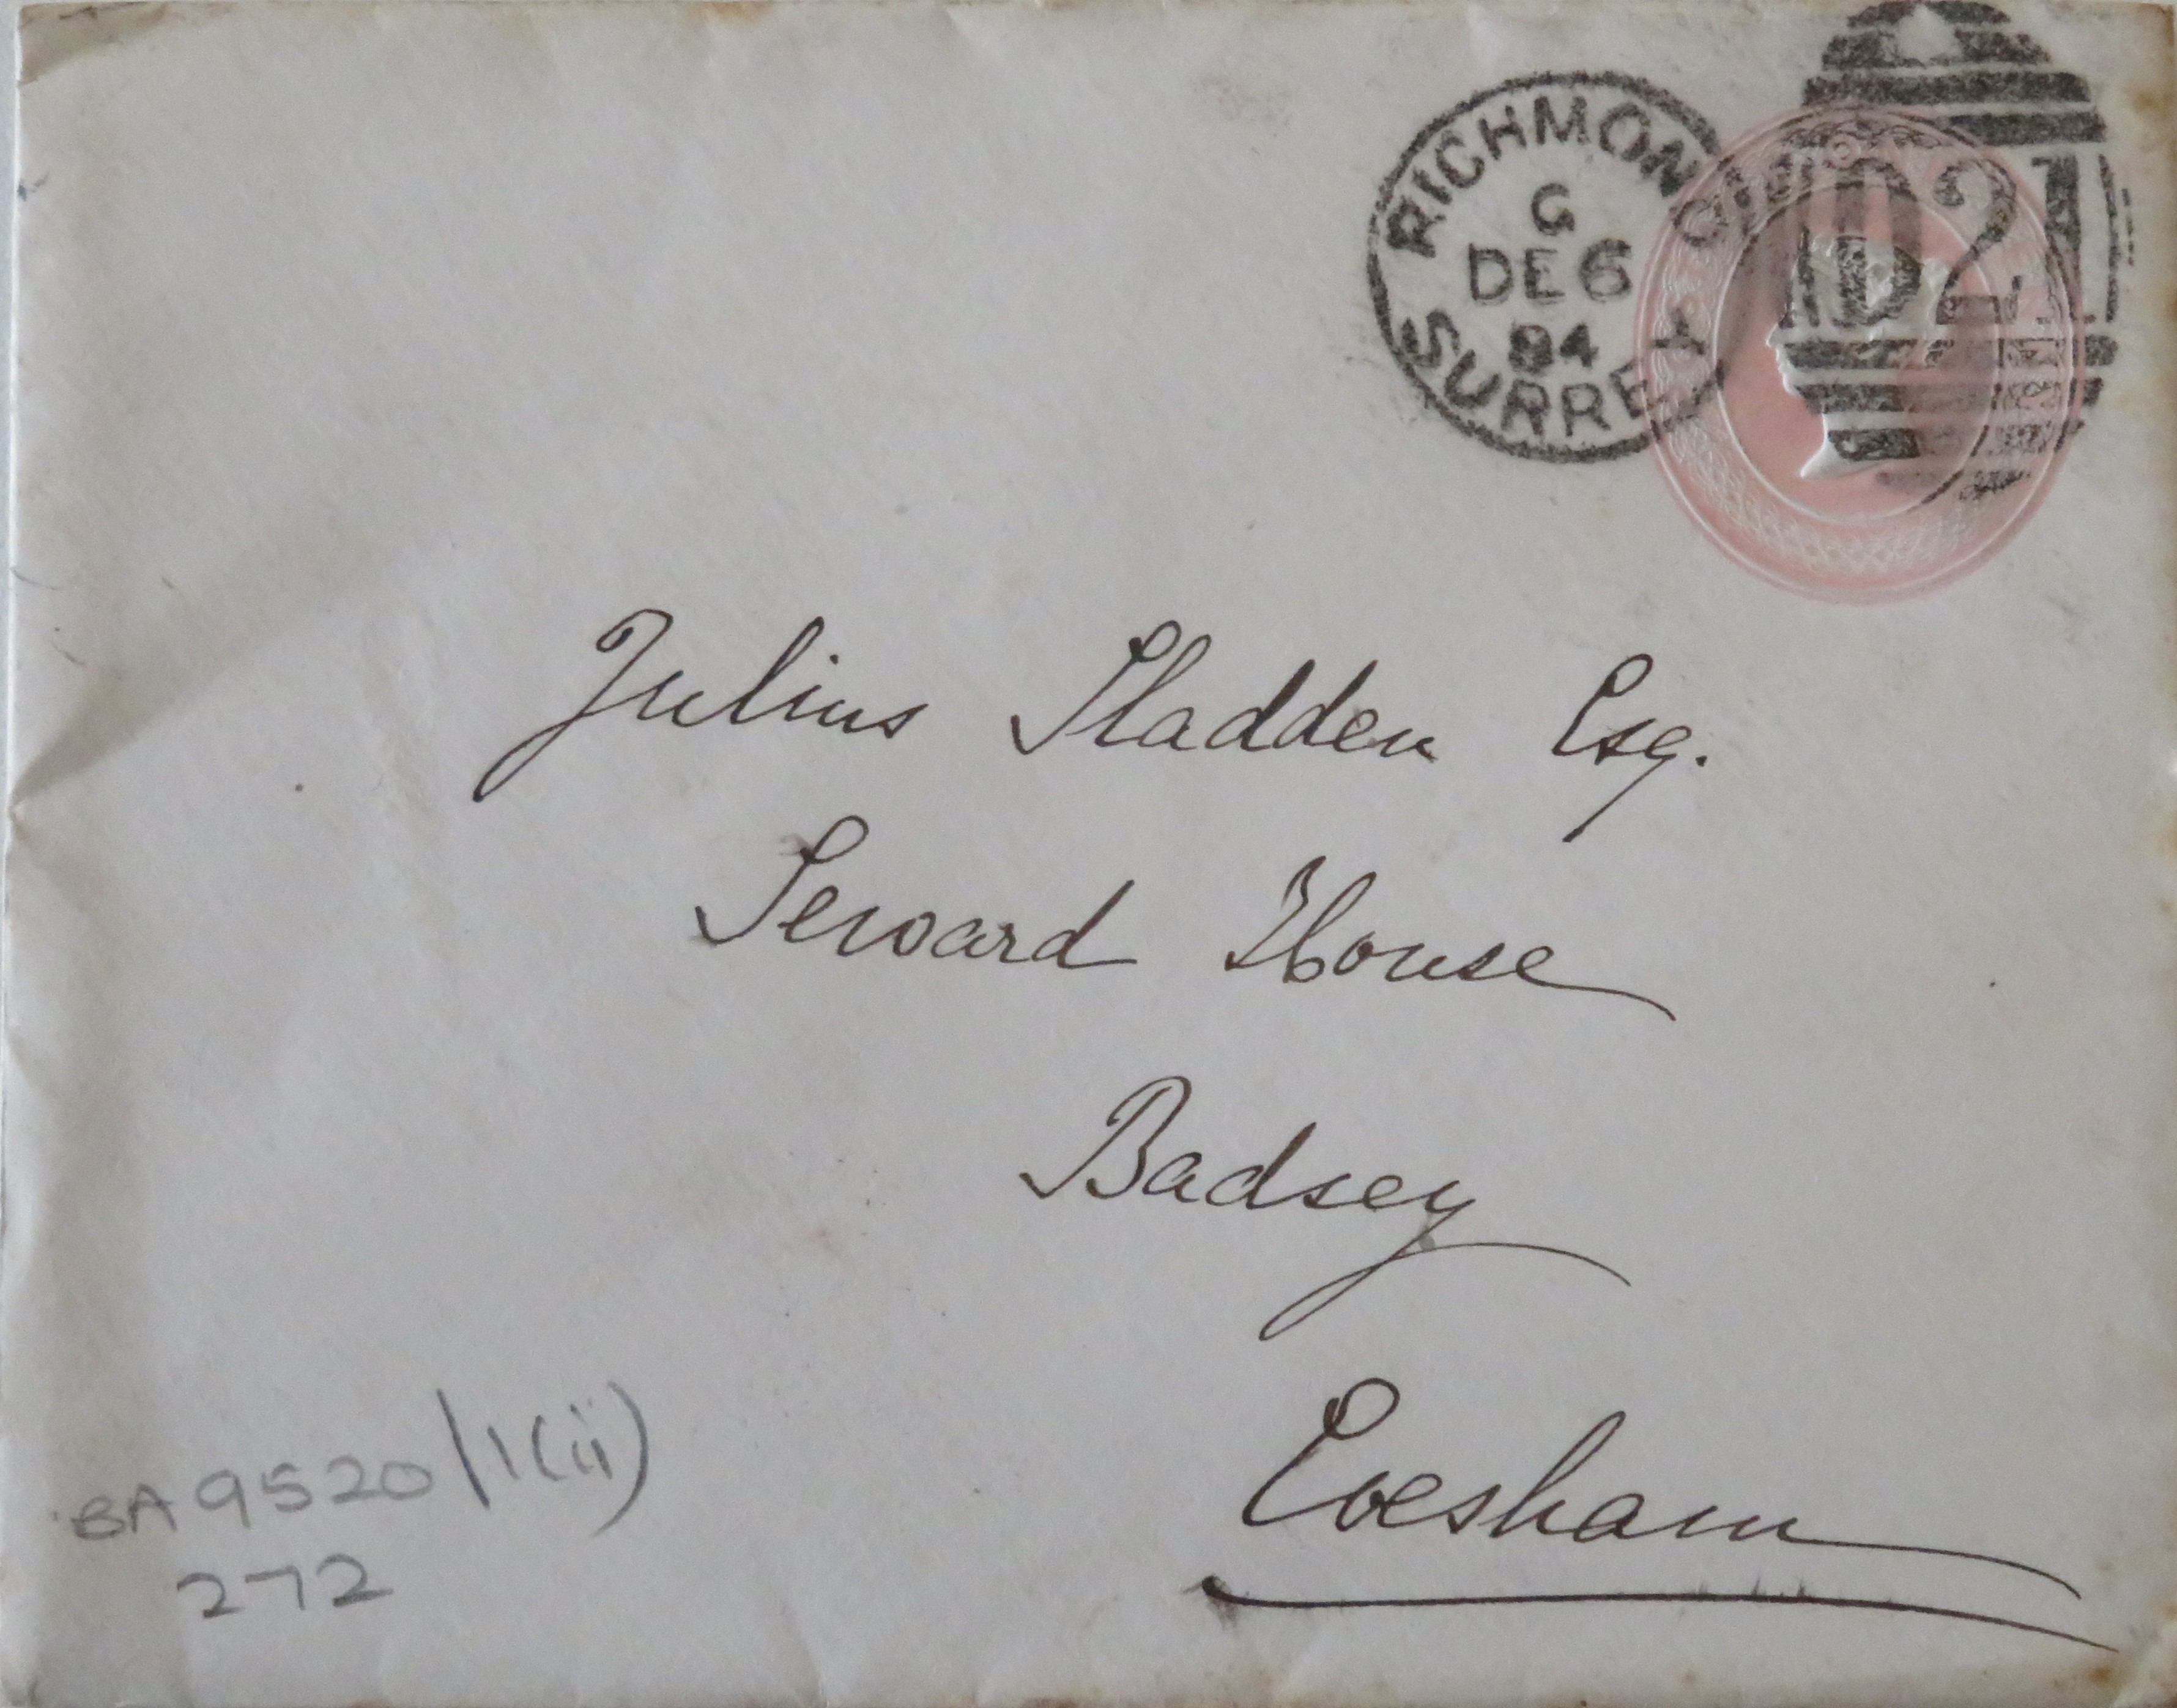 RICHMOND
G
DE 6
84
SURREY
D21
Julius Sladden Esq.
Seward House
Badsey
Evesham
BA 9520/1(ii)
272